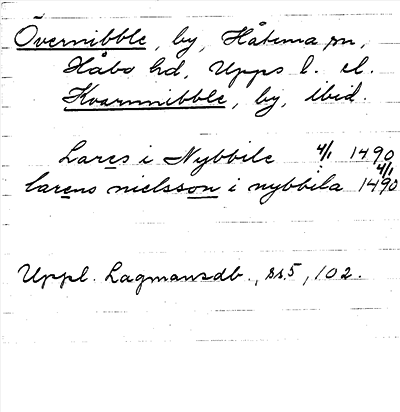 Övernibble, by, Håtuna sn,
Håbo hd, Upps l. el.
Kvarnnibble, by, ibid.
Lares i Nybbile 4/1 1490
larens nielsson i nybbila 4/1 1490
Uppl. Lagmansdb., ss 5, 102.